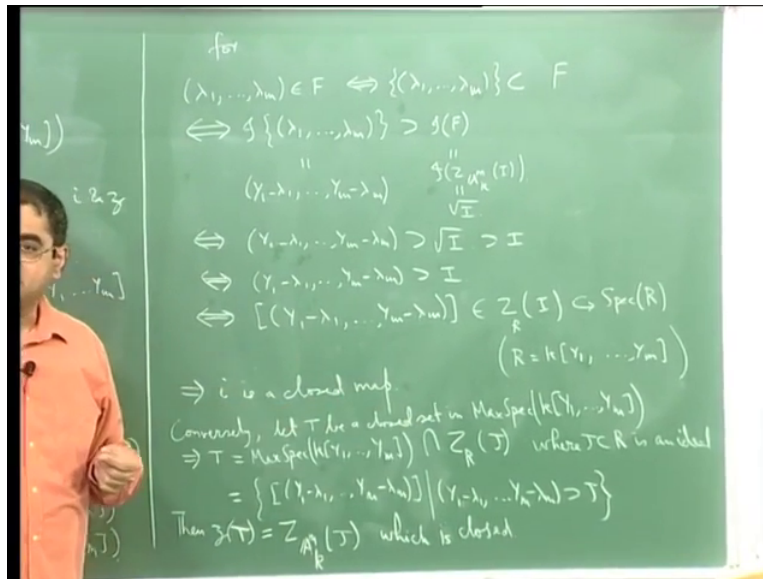 Y_m])
i & z
Y_1, … Y_m]
J)
_m])
for
(λ_1, …, λ_m) ∈ F ⟺ {(λ_1, …, λ_m)} ⊂ F
⟺ 𝓘{(λ_1, …, λ_m)} ⊃ 𝓘(F)
= =
(Y_1-λ_1, …, Y_m-λ_m) 𝓘(Z_{A^m_k}(I))
=
√I
⟺ (Y_1-λ_1, …, Y_m-λ_m) ⊃ √I ⊃ I
⟺ (Y_1-λ_1, …, Y_m-λ_m) ⊃ I
⟺ [(Y_1-λ_1, …, Y_m-λ_m)] ∈ Z_R(I) ↪ Spec(R)
(R = k[Y_1, …, Y_m])
⟹ i is a closed map.
Conversely, let T be a closed set in MaxSpec(k[Y_1, …, Y_m])
⟹ T = MaxSpec(k[Y_1, …, Y_m]) ∩ Z_R(J) where J ⊂ R is an ideal
= {[(Y_1-λ_1, …, Y_m-λ_m)] | (Y_1-λ_1, … Y_m-λ_m) ⊃ J}
Then z(T) = Z_{A^m_k}(J) which is closed